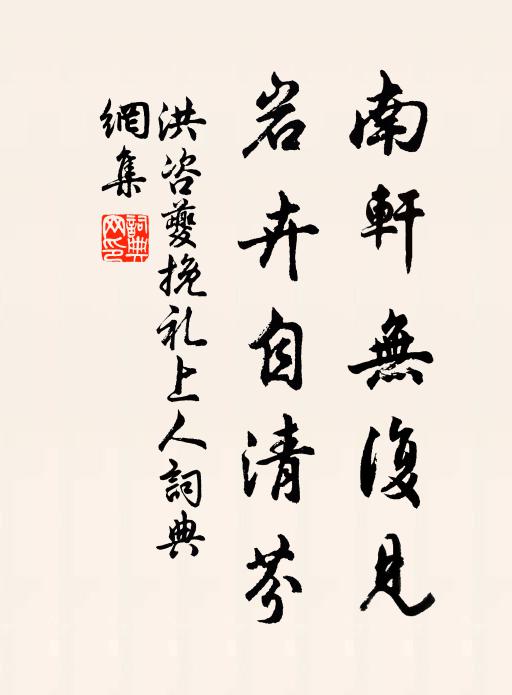 南軒無復見
岩卉自清芬
洪咨夔挽礼上人詞典
網集
詞典網印